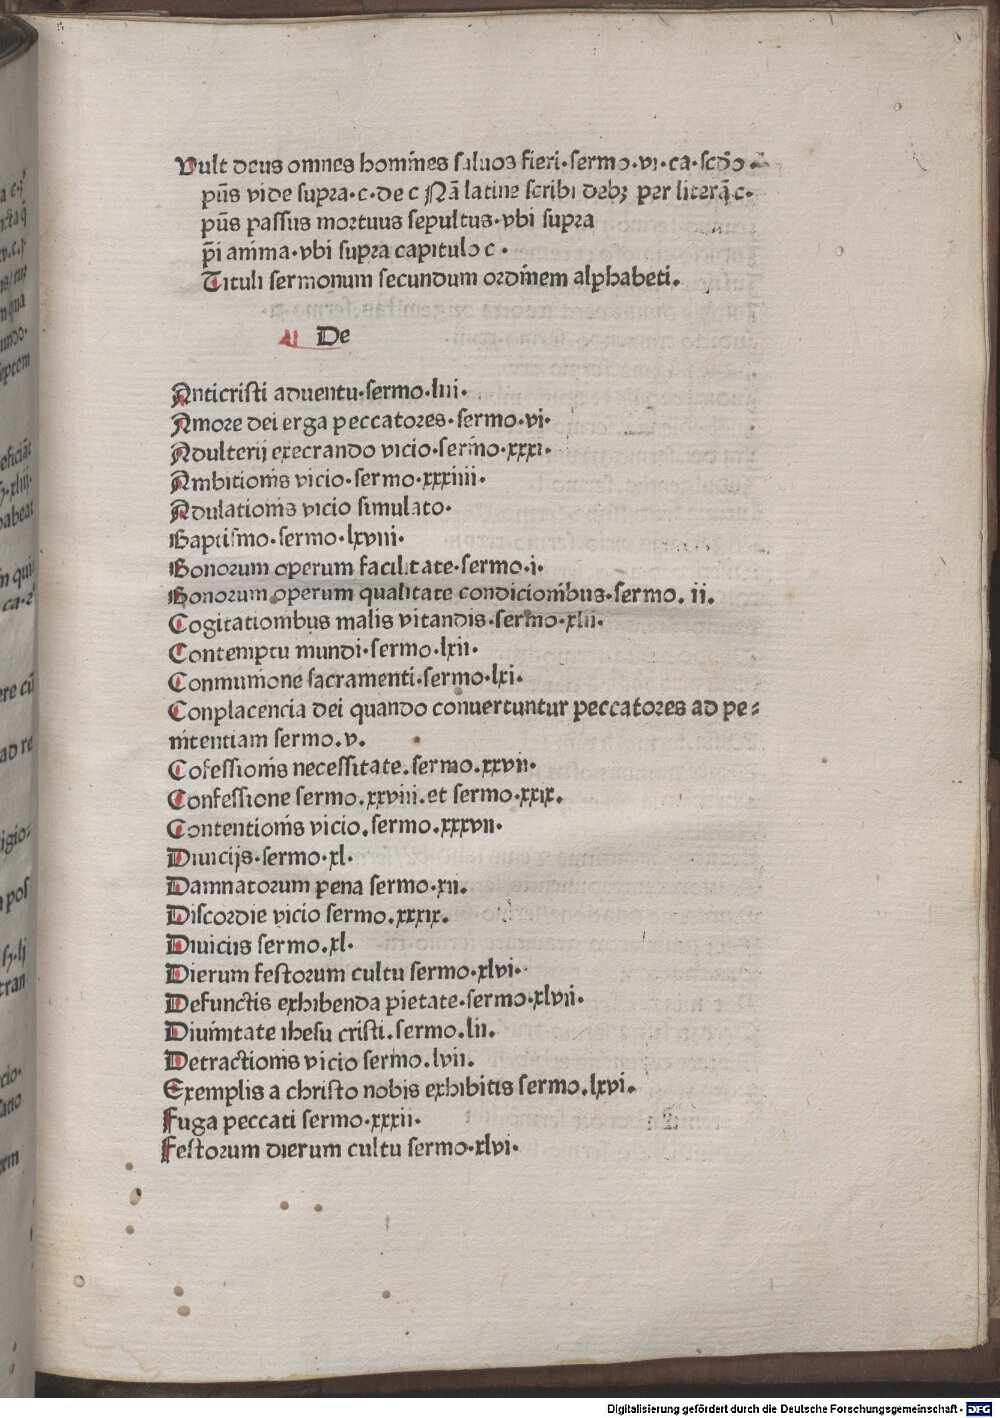 Vult deus omnes homines saluos fieri·sermo·vi·ca·scdo
pūs vide supra·c·de c Nā latine scribi debꝫ per literā c·
pūs passus mortuus sepultus·vbi supra
p̄i anima·vbi supra capitulo c·
Tituli sermonum secundum ordinem alphabeti.
De
Anticristi aduentu·sermo·liii·
Amore dei erga peccatores·sermo·vi·
Adulterij execrando vicio·sermo·xxxi·
Ambitionis vicio·sermo·xxxiiii·
Adulationis vicio simulato·
Baptismo·sermo·lxviii·
Bonorum operum facilitate·sermo·i·
Bonorum operum qualitate condicionibus·sermo. ii.
Cogitationibus malis vitandis·sermo·xlii·
Contemptu mundi·sermo·lxii·
Conmunione sacramenti·sermo·lxi·
Conplacencia dei quando conuertuntur peccatores ad pe⸗
nitentiam sermo.v.
Cofessionis necessitate.sermo.xxvii·
Confessione sermo.xxviii.et sermo·xxix.
Contentionis vicio.sermo.xxxvii·
Diuicijs·sermo·xl·
Damnatorum pena sermo·xii.
Discordie vicio sermo.xxxix.
Diuiciis sermo.xl·
Dierum festorum cultu sermo·xlvi·
Defunctis exhibenda pietate·sermo·xlvii·
Diuinitate ihesu cristi.sermo.lii.
Detractionis vicio sermo.lvii.
Exemplis a christo nobis exhibitis sermo.lxvi.
Fuga peccati sermo·xxxii.
Festorum dierum cultu sermo·xlvi·
Digitalisierung gefördert durch die Deutsche Forschungsgemeinschaft - DFG